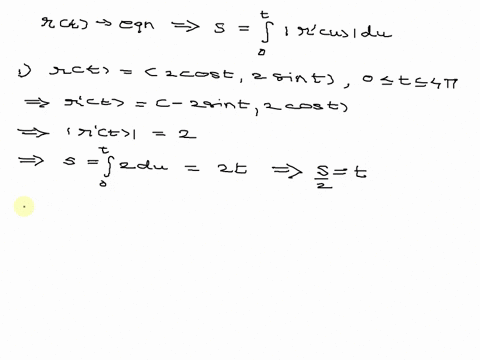 r(t) → eqn ⟹ s = ∫₀ᵗ |r'(u)| du
1) r(t) = (2cost, 2sint), 0 ≤ t ≤ 4π
⟹ r'(t) = (-2sint, 2cost)
⟹ |r'(t)| = 2
⟹ s = ∫₀ᵗ 2du = 2t ⟹ s/2 = t